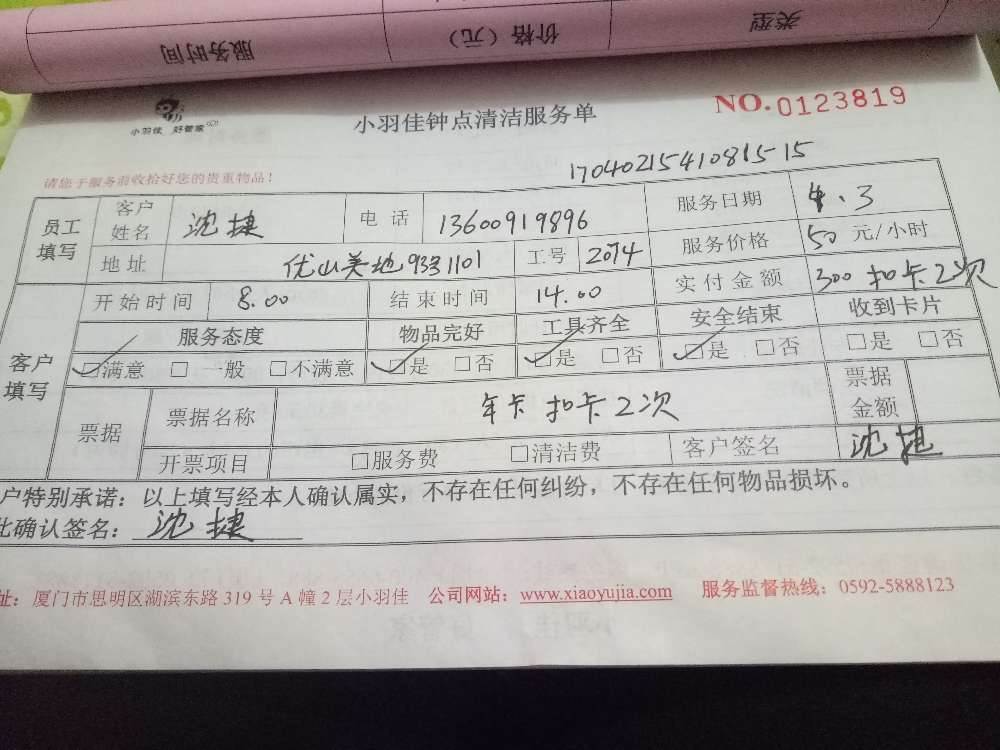 服务时间 价格（元） 类型
小羽佳 好管家
小羽佳钟点清洁服务单
NO.0123819
请您于服务前收拾好您的贵重物品！
17040215410815-15
员工填写 客户姓名 沈捷 电话 13600919896 服务日期 4.3
地址 优山美地933 1101 工号 2074 服务价格 50 元/小时
客户填写 开始时间 8.00 结束时间 14.00 实付金额 300 扣卡2次
服务态度 物品完好 工具齐全 安全结束 收到卡片
☑满意 □一般 □不满意 ☑是 □否 ☑是 □否 ☑是 □否 □是 □否
票据 票据名称 年卡 扣卡2次 票据金额
开票项目 □服务费 □清洁费 客户签名 沈捷
户特别承诺：以上填写经本人确认属实，不存在任何纠纷，不存在任何物品损坏。
此确认签名：沈捷
址：厦门市思明区湖滨东路 319 号 A 幢 2 层小羽佳 公司网站：www.xiaoyujia.com 服务监督热线：0592-5888123